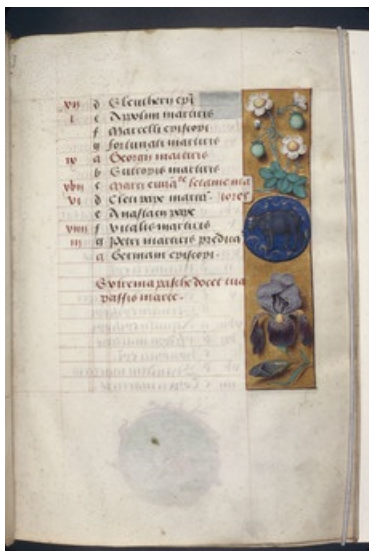 vii d Eleutherii epi
i e Appolini martiris
f Marcelli episcopi
g Fortunati martiris
ix a Georgii martiris
b Eutropii martiris
xvii c Marci euua letanie ma
vi d Cleti pape martir iores
e Anastasii pape
xiiii f Vitalis martiris
iii g Petri martiris predica
a Germani episcopi.
Extrema pasche docet tua
passio marce.